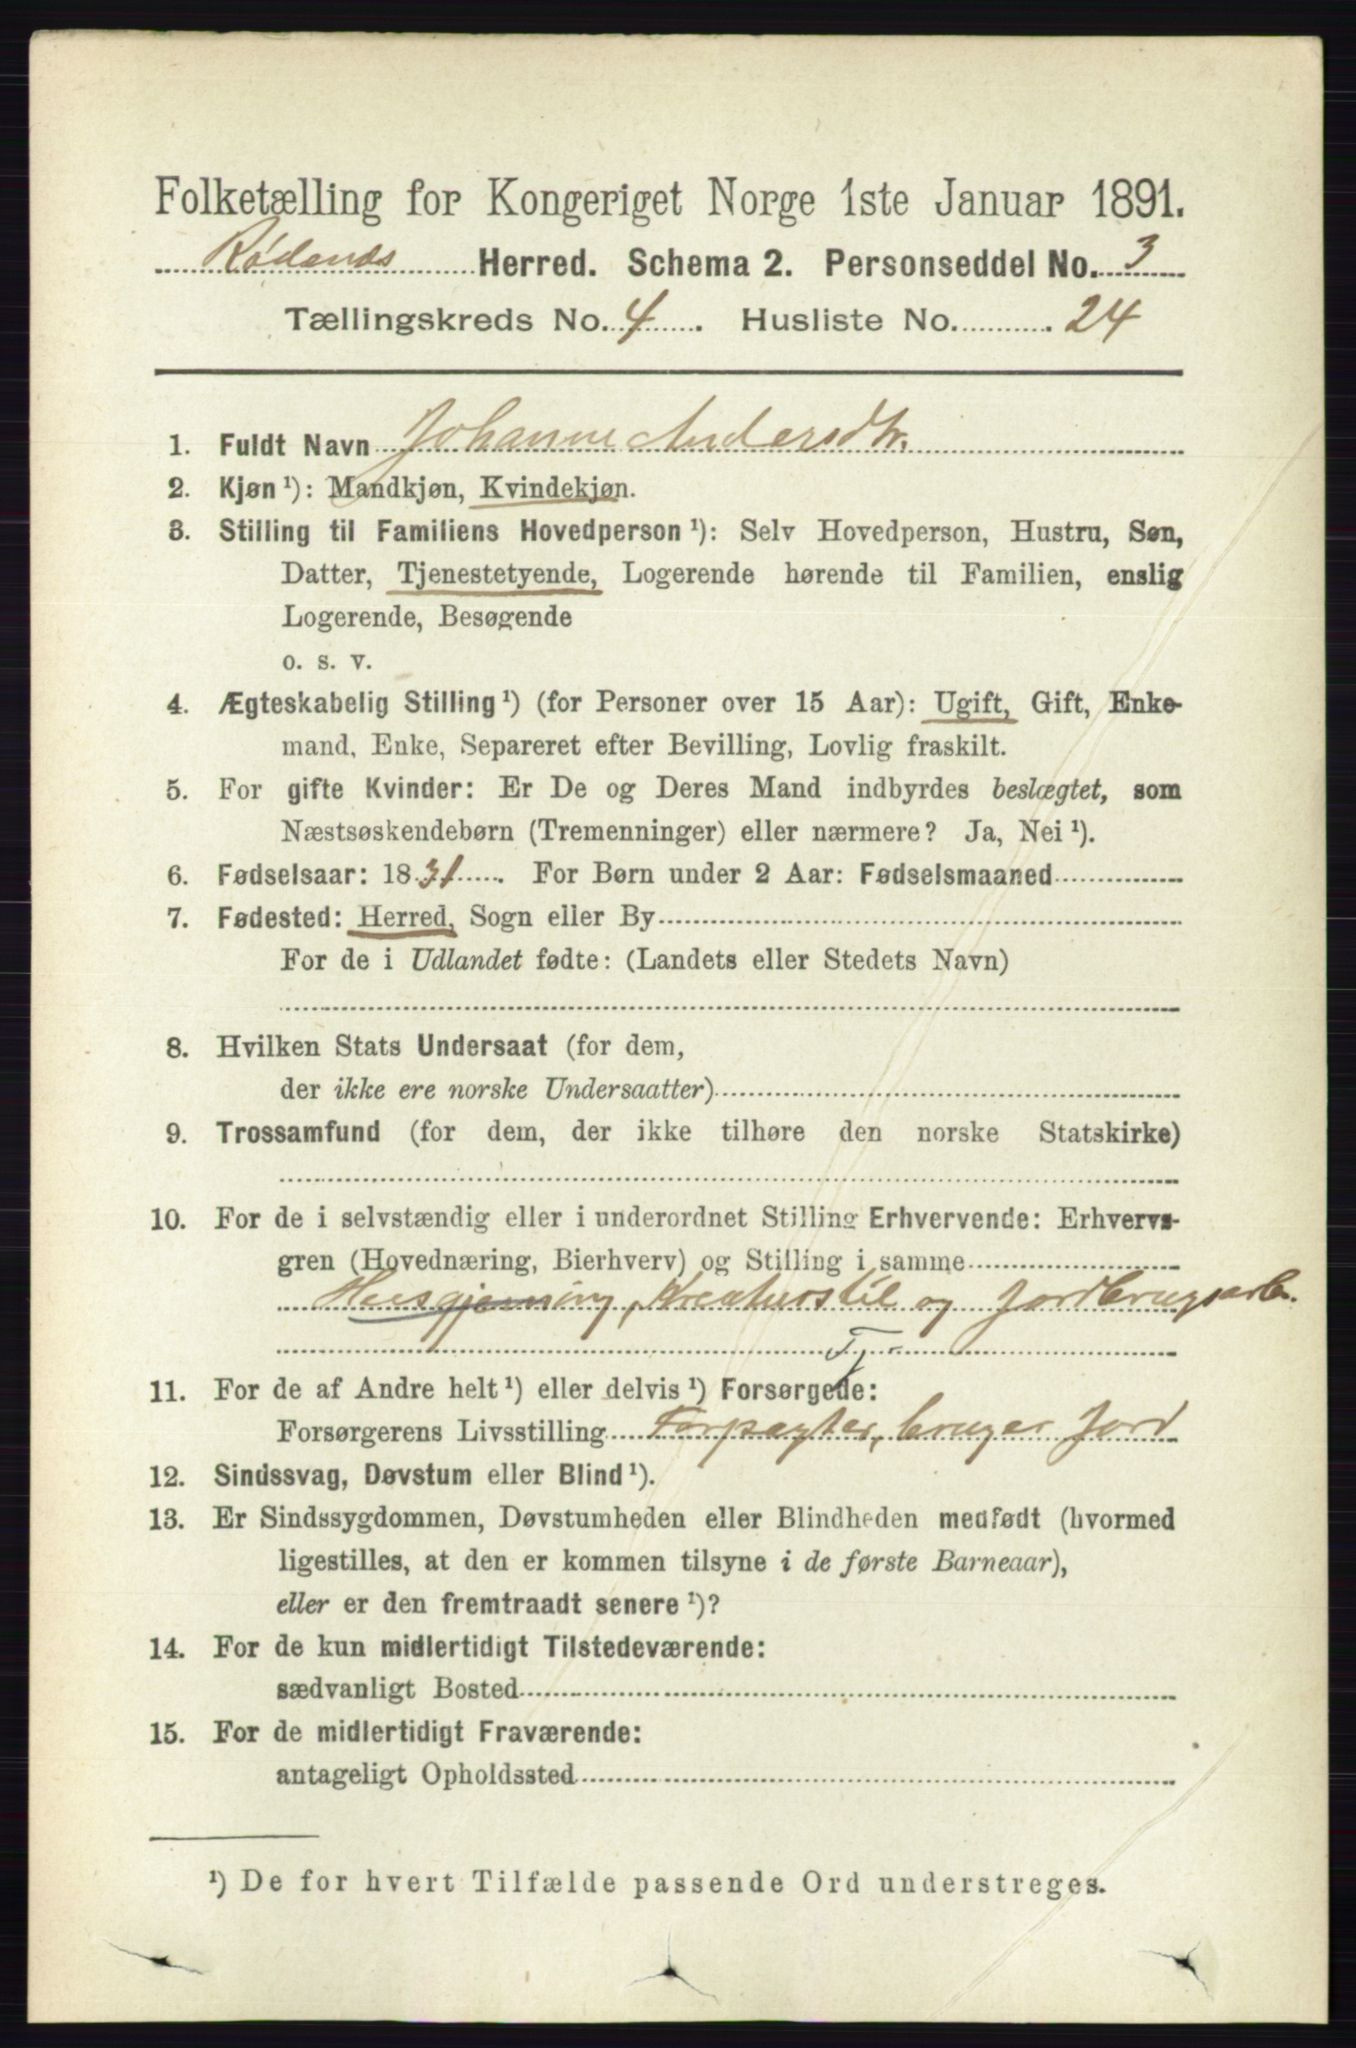 Folketælling for Kongeriget Norge 1ste Januar 1891.
Rødenæs Herred. Schema 2. Personseddel No. 3
Tællingskreds No. 4. Husliste No. 24
1. Fuldt Navn Johanne Andersdtr.
2. Kjøn¹): Mandkjøn, Kvindekjøn.
3. Stilling til Familiens Hovedperson¹): Selv Hovedperson, Hustru, Søn,
Datter, Tjenestetyende, Logerende hørende til Familien, enslig
Logerende, Besøgende
o. s. v.
4. Ægteskabelig Stilling¹) (for Personer over 15 Aar): Ugift, Gift, Enke-
mand, Enke, Separeret efter Bevilling, Lovlig fraskilt.
5. For gifte Kvinder: Er De og Deres Mand indbyrdes beslægtet, som
Næstsøskendebørn (Tremenninger) eller nærmere? Ja, Nei¹).
6. Fødselsaar: 1831. For Børn under 2 Aar: Fødselsmaaned
7. Fødested: Herred, Sogn eller By
For de i Udlandet fødte: (Landets eller Stedets Navn)
8. Hvilken Stats Undersaat (for dem,
der ikke ere norske Undersaatter)
9. Trossamfund (for dem, der ikke tilhøre den norske Statskirke)
10. For de i selvstændig eller i underordnet Stilling Erhvervende: Erhvervs-
gren (Hovednæring, Bierhverv) og Stilling i samme
Husgjerning, Kreaturstel og Jordbrugsarb.
Tj.
11. For de af Andre helt¹) eller delvis¹) Forsørgede:
Forsørgerens Livsstilling Forpagter, bruger Jord
12. Sindssvag, Døvstum eller Blind¹).
13. Er Sindssygdommen, Døvstumheden eller Blindheden medfødt (hvormed
ligestilles, at den er kommen tilsyne i de første Barneaar),
eller er den fremtraadt senere¹)?
14. For de kun midlertidigt Tilstedeværende:
sædvanligt Bosted
15. For de midlertidigt Fraværende:
antageligt Opholdssted
¹) De for hvert Tilfælde passende Ord understreges.